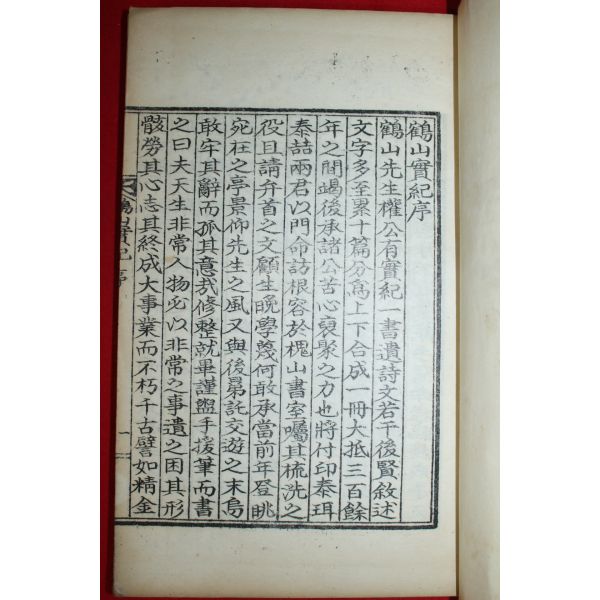 鶴山實紀序
鶴山先生權公有實紀一書遺詩文若干後賢敘述
文字多至累十篇分爲上下合成一冊大抵三百餘
年之間竭後承諸公苦心裒聚之力也將付印泰珥
泰喆兩君以門命訪根容於槐山書室囑其梳洗之
役且請弁首之文顧生晩學蔑何敢承當前年登眺
宛在之亭景仰先生之風又與後昴託交遊之末烏
敢牢其辭而孤其意哉修整就畢謹盥手援筆而書
之曰夫天生非常人物必以非常之事遺之困其形
骸勞其心志其終成大事業而不朽千古譬如精金
鶴山實紀 序
一